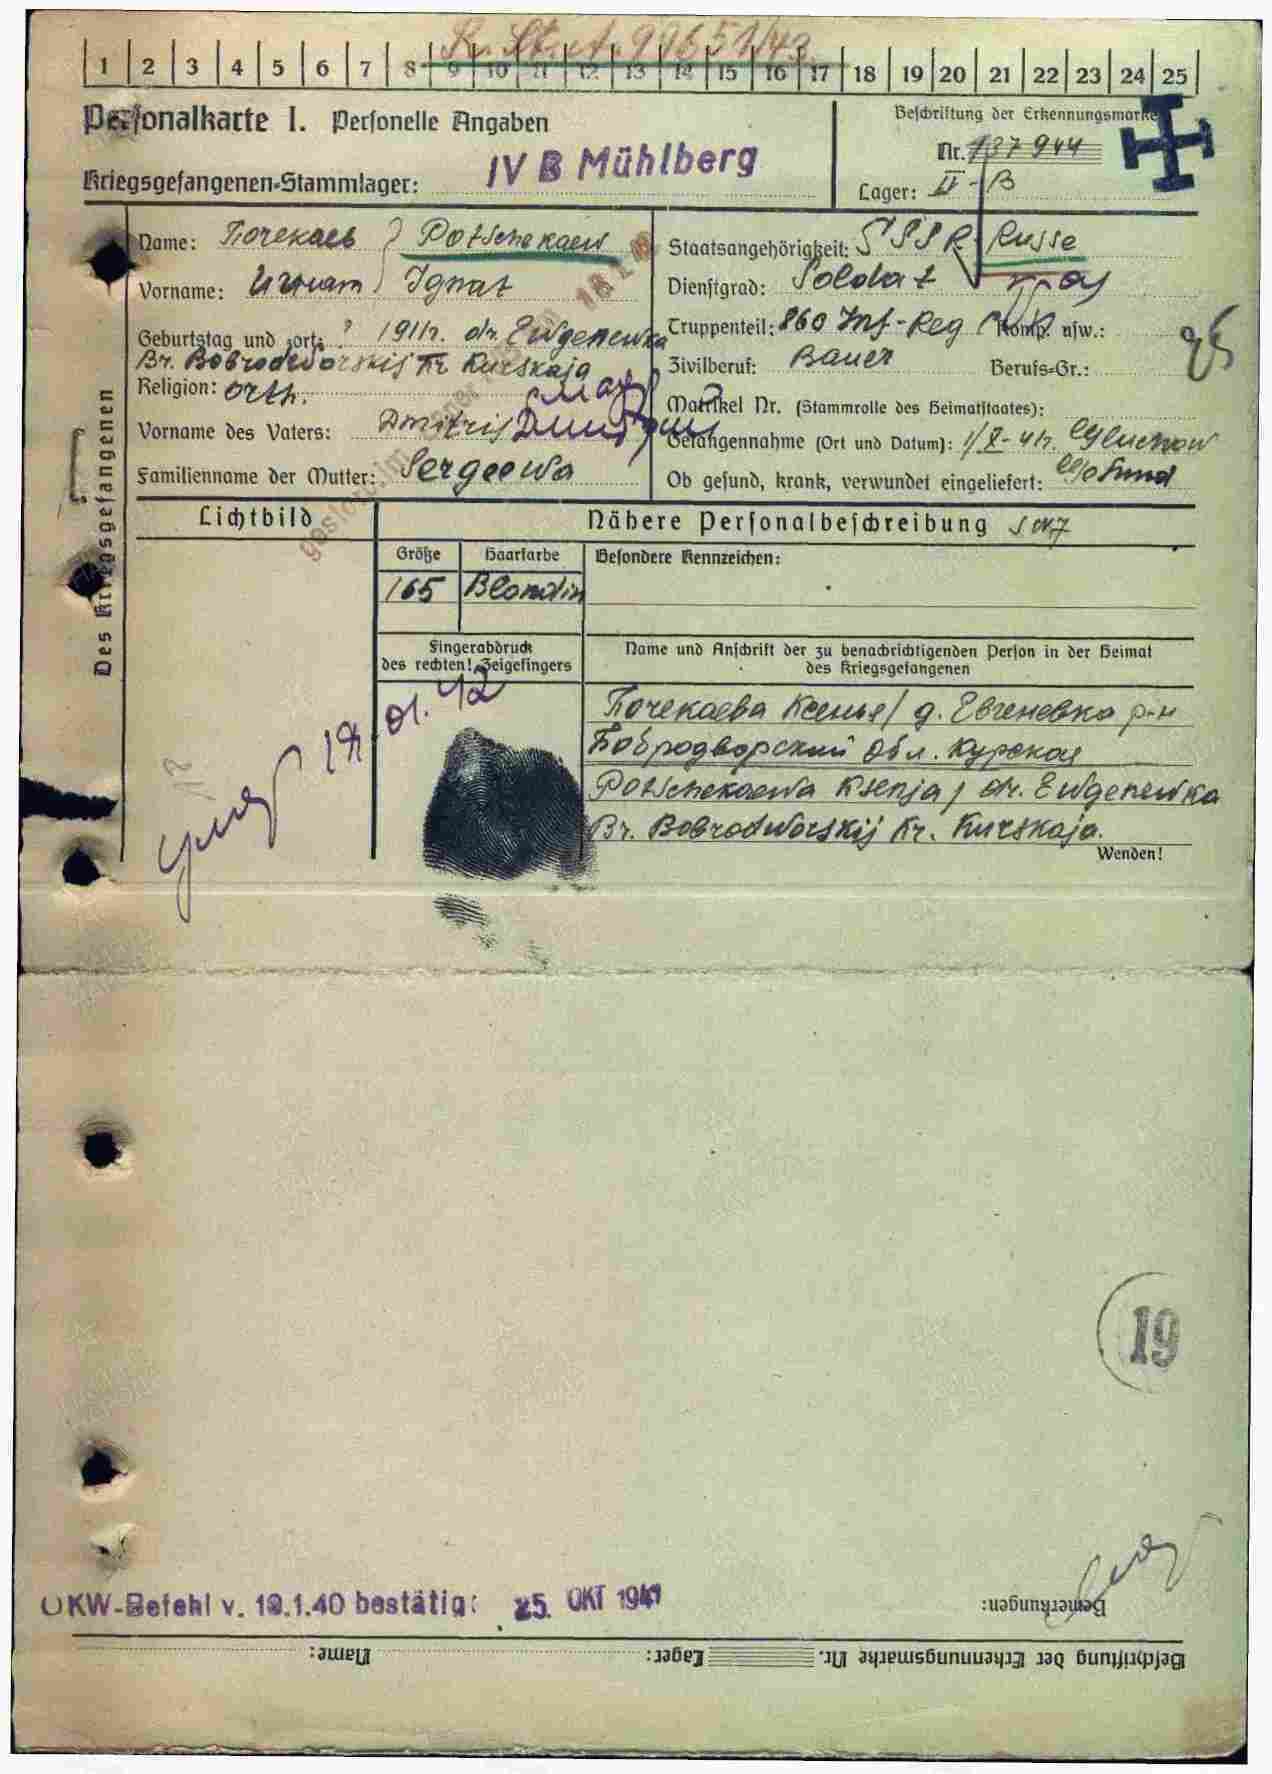 1 2 3 4 5 6 7 8 9 10 11 12 13 14 15 16 17 18 19 20 21 22 23 24 25
Personalkarte I. Personelle Angaben
Beschriftung der Erkennungsmarke
Nr. 137944
Kriegsgefangenen-Stammlager: IV B Mühlberg
Lager: IV-B
Des Kriegsgefangenen
Name: Почекаев Potschekaew
Vorname: Игнат Ignat
Geburtstag und -ort: ? 1911r. dr. Ewgenewka
Br. Bobrodworskij Kr. Kurskaja
Religion: orth.
Vorname des Vaters: Dmitrij
Familienname der Mutter: Sergeewa
Staatsangehörigkeit: SSSR Russe
Dienstgrad: Soldat
Truppenteil: 860 Inf-Reg Komp. usw.:
Zivilberuf: Bauer Berufs-Gr.:
Matrikel Nr. (Stammrolle des Heimatstaates):
Gefangennahme (Ort und Datum): 1/X-41r. Gluchow
Ob gesund, krank, verwundet eingeliefert: Gesund
25
Lichtbild
Nähere Personalbeschreibung
Größe Haarfarbe Besondere Kennzeichen:
165 Blondin
Fingerabdruck
des rechten! Zeigefingers
Name und Anschrift der zu benachrichtigenden Person in der Heimat
des Kriegsgefangenen
19.01.42
Почекаева Ксенья/ д. Евгеневка р-н
Бобродворский обл. Курская
Potschekaewa Ksenja/ dr. Ewgenewka
Br. Bobrodworskij Kr. Kurskaja.
Wenden!
19
OKW-Befehl v. 19.1.40 bestätig: 25. OKT 1941
Bemerkungen:
Beschriftung der Erkennungsmarke Nr. Lager: Name: